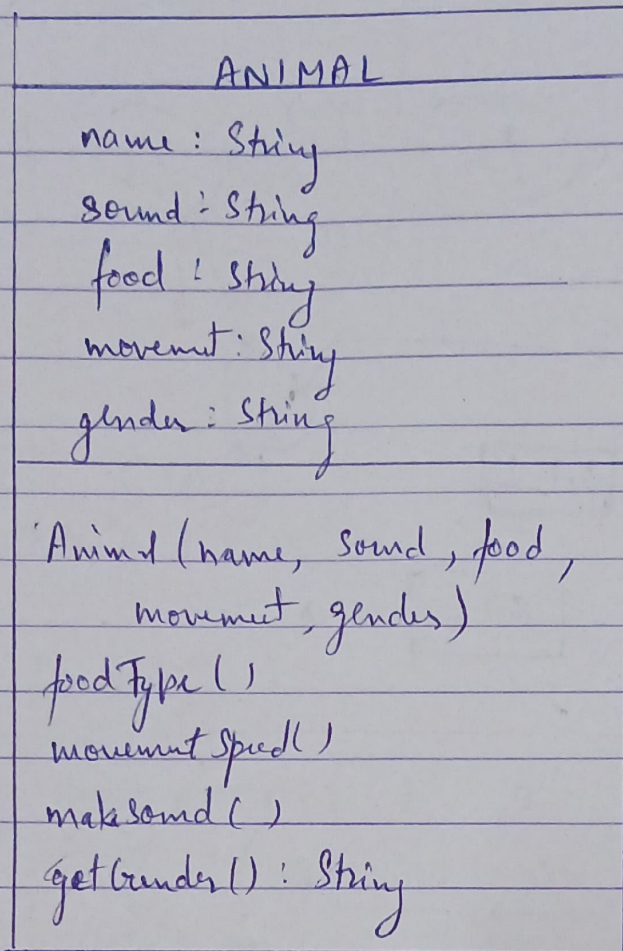 ANIMAL
name : String
sound : String
food : String
movement : String
gender : String
Animal (name, sound, food,
movement, gender)
foodType ()
movement Speed()
makeSound ()
getGender() : String